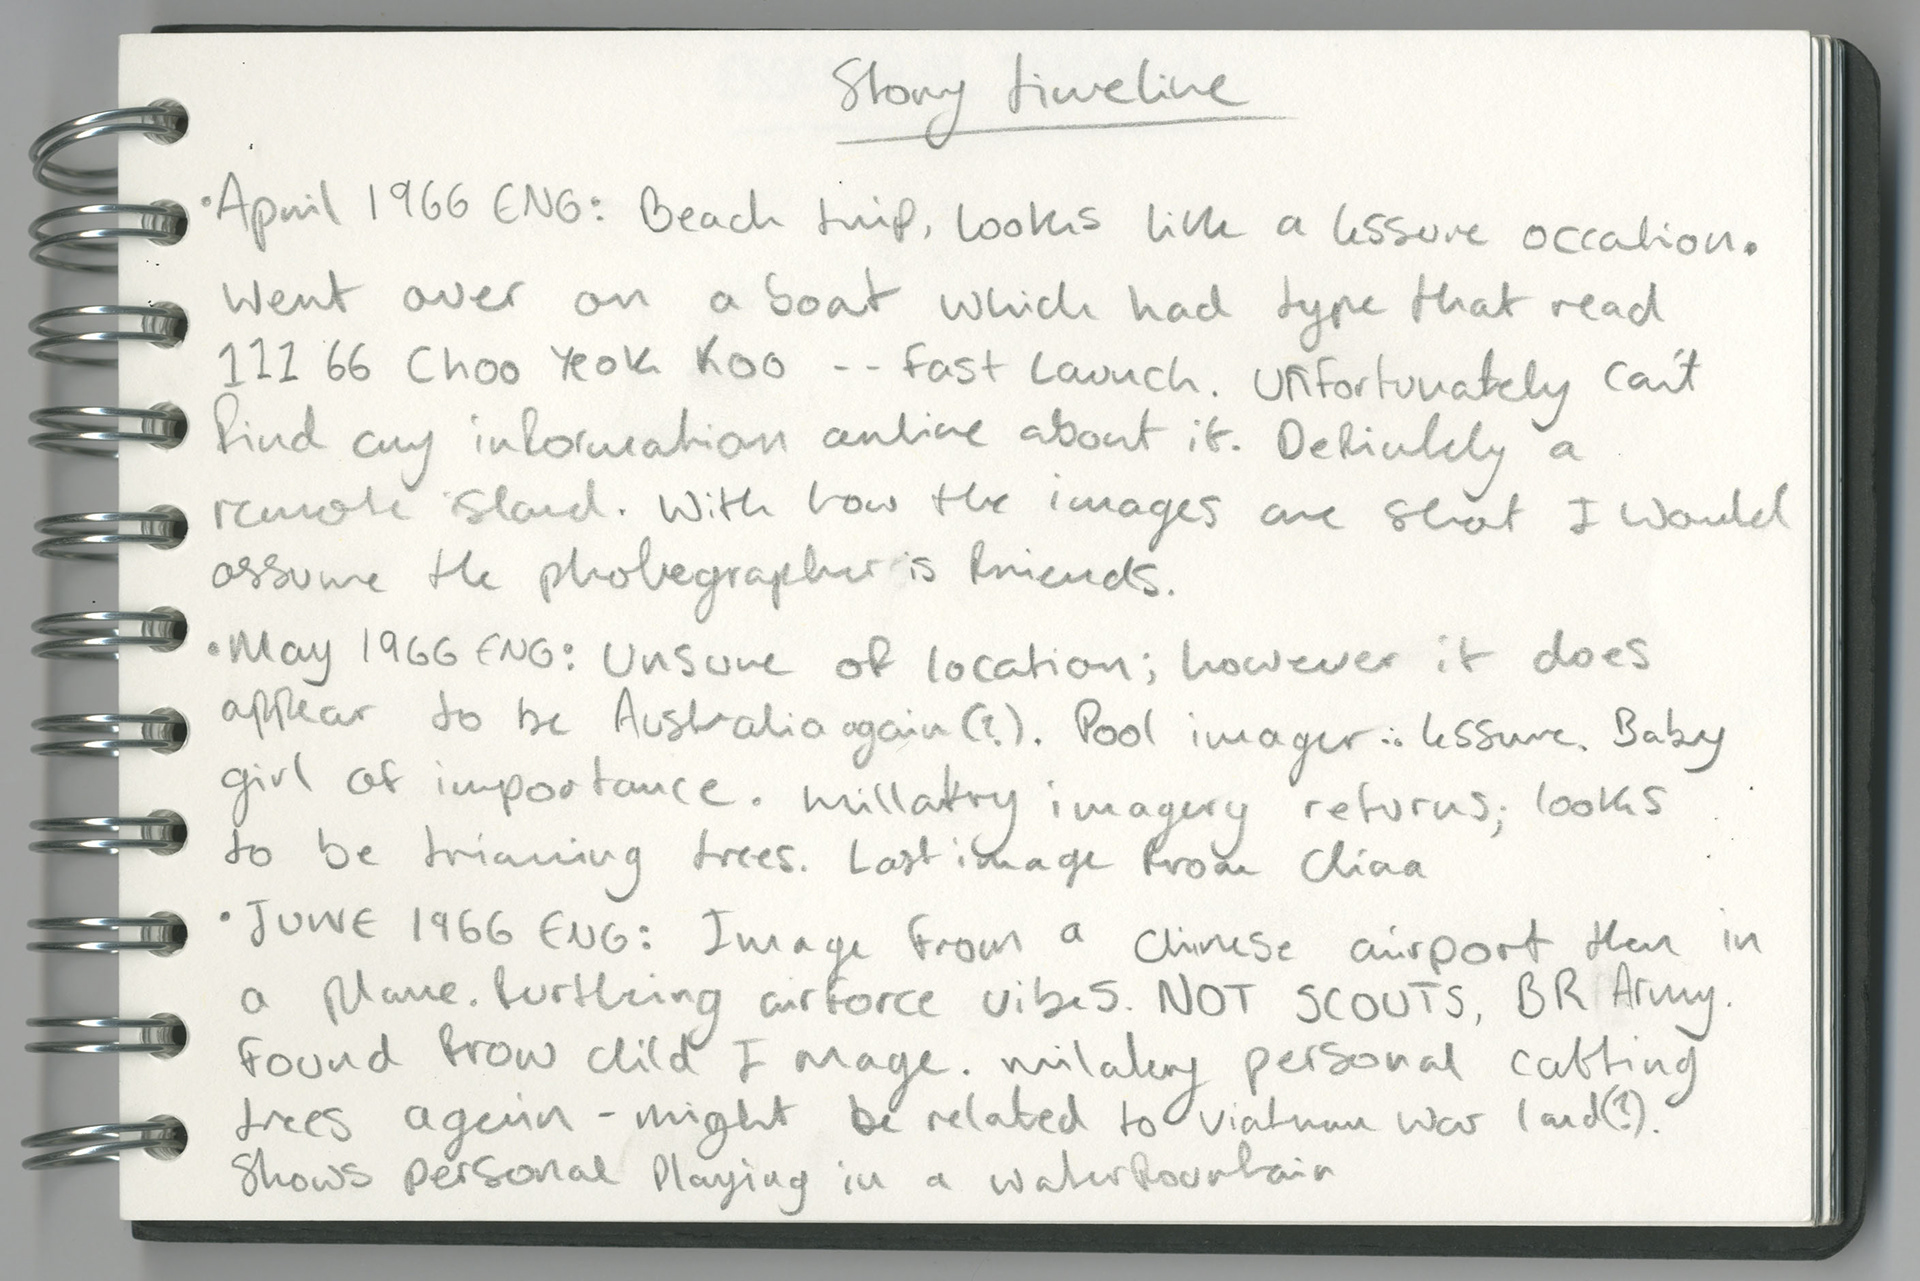 Story timeline
• April 1966 ENG: Beach trip, looks like a lessure occation.
Went over on a boat which had type that read
111 66 Choo Yeok Koo -- Fast Launch. Unfortunately can't
find any information online about it. Definitely a
remote island. With how the images are shot I would
assume the photographer is friends.
• May 1966 ENG: Unsure of location; however it does
appear to be Australia again(?). Pool imager ∴ lessure. Baby
girl of importance. millatry imagery returns; looks
to be triaming trees. Last image from China
• JUNE 1966 ENG: Image from a chinese airport then in
a plane. furthering airforce vibes. NOT SCOUTS, BR Army.
Found from child Image. milatry personal cutting
trees again - might be related to viatnam war land(?).
Shows personal playing in a waterfountain